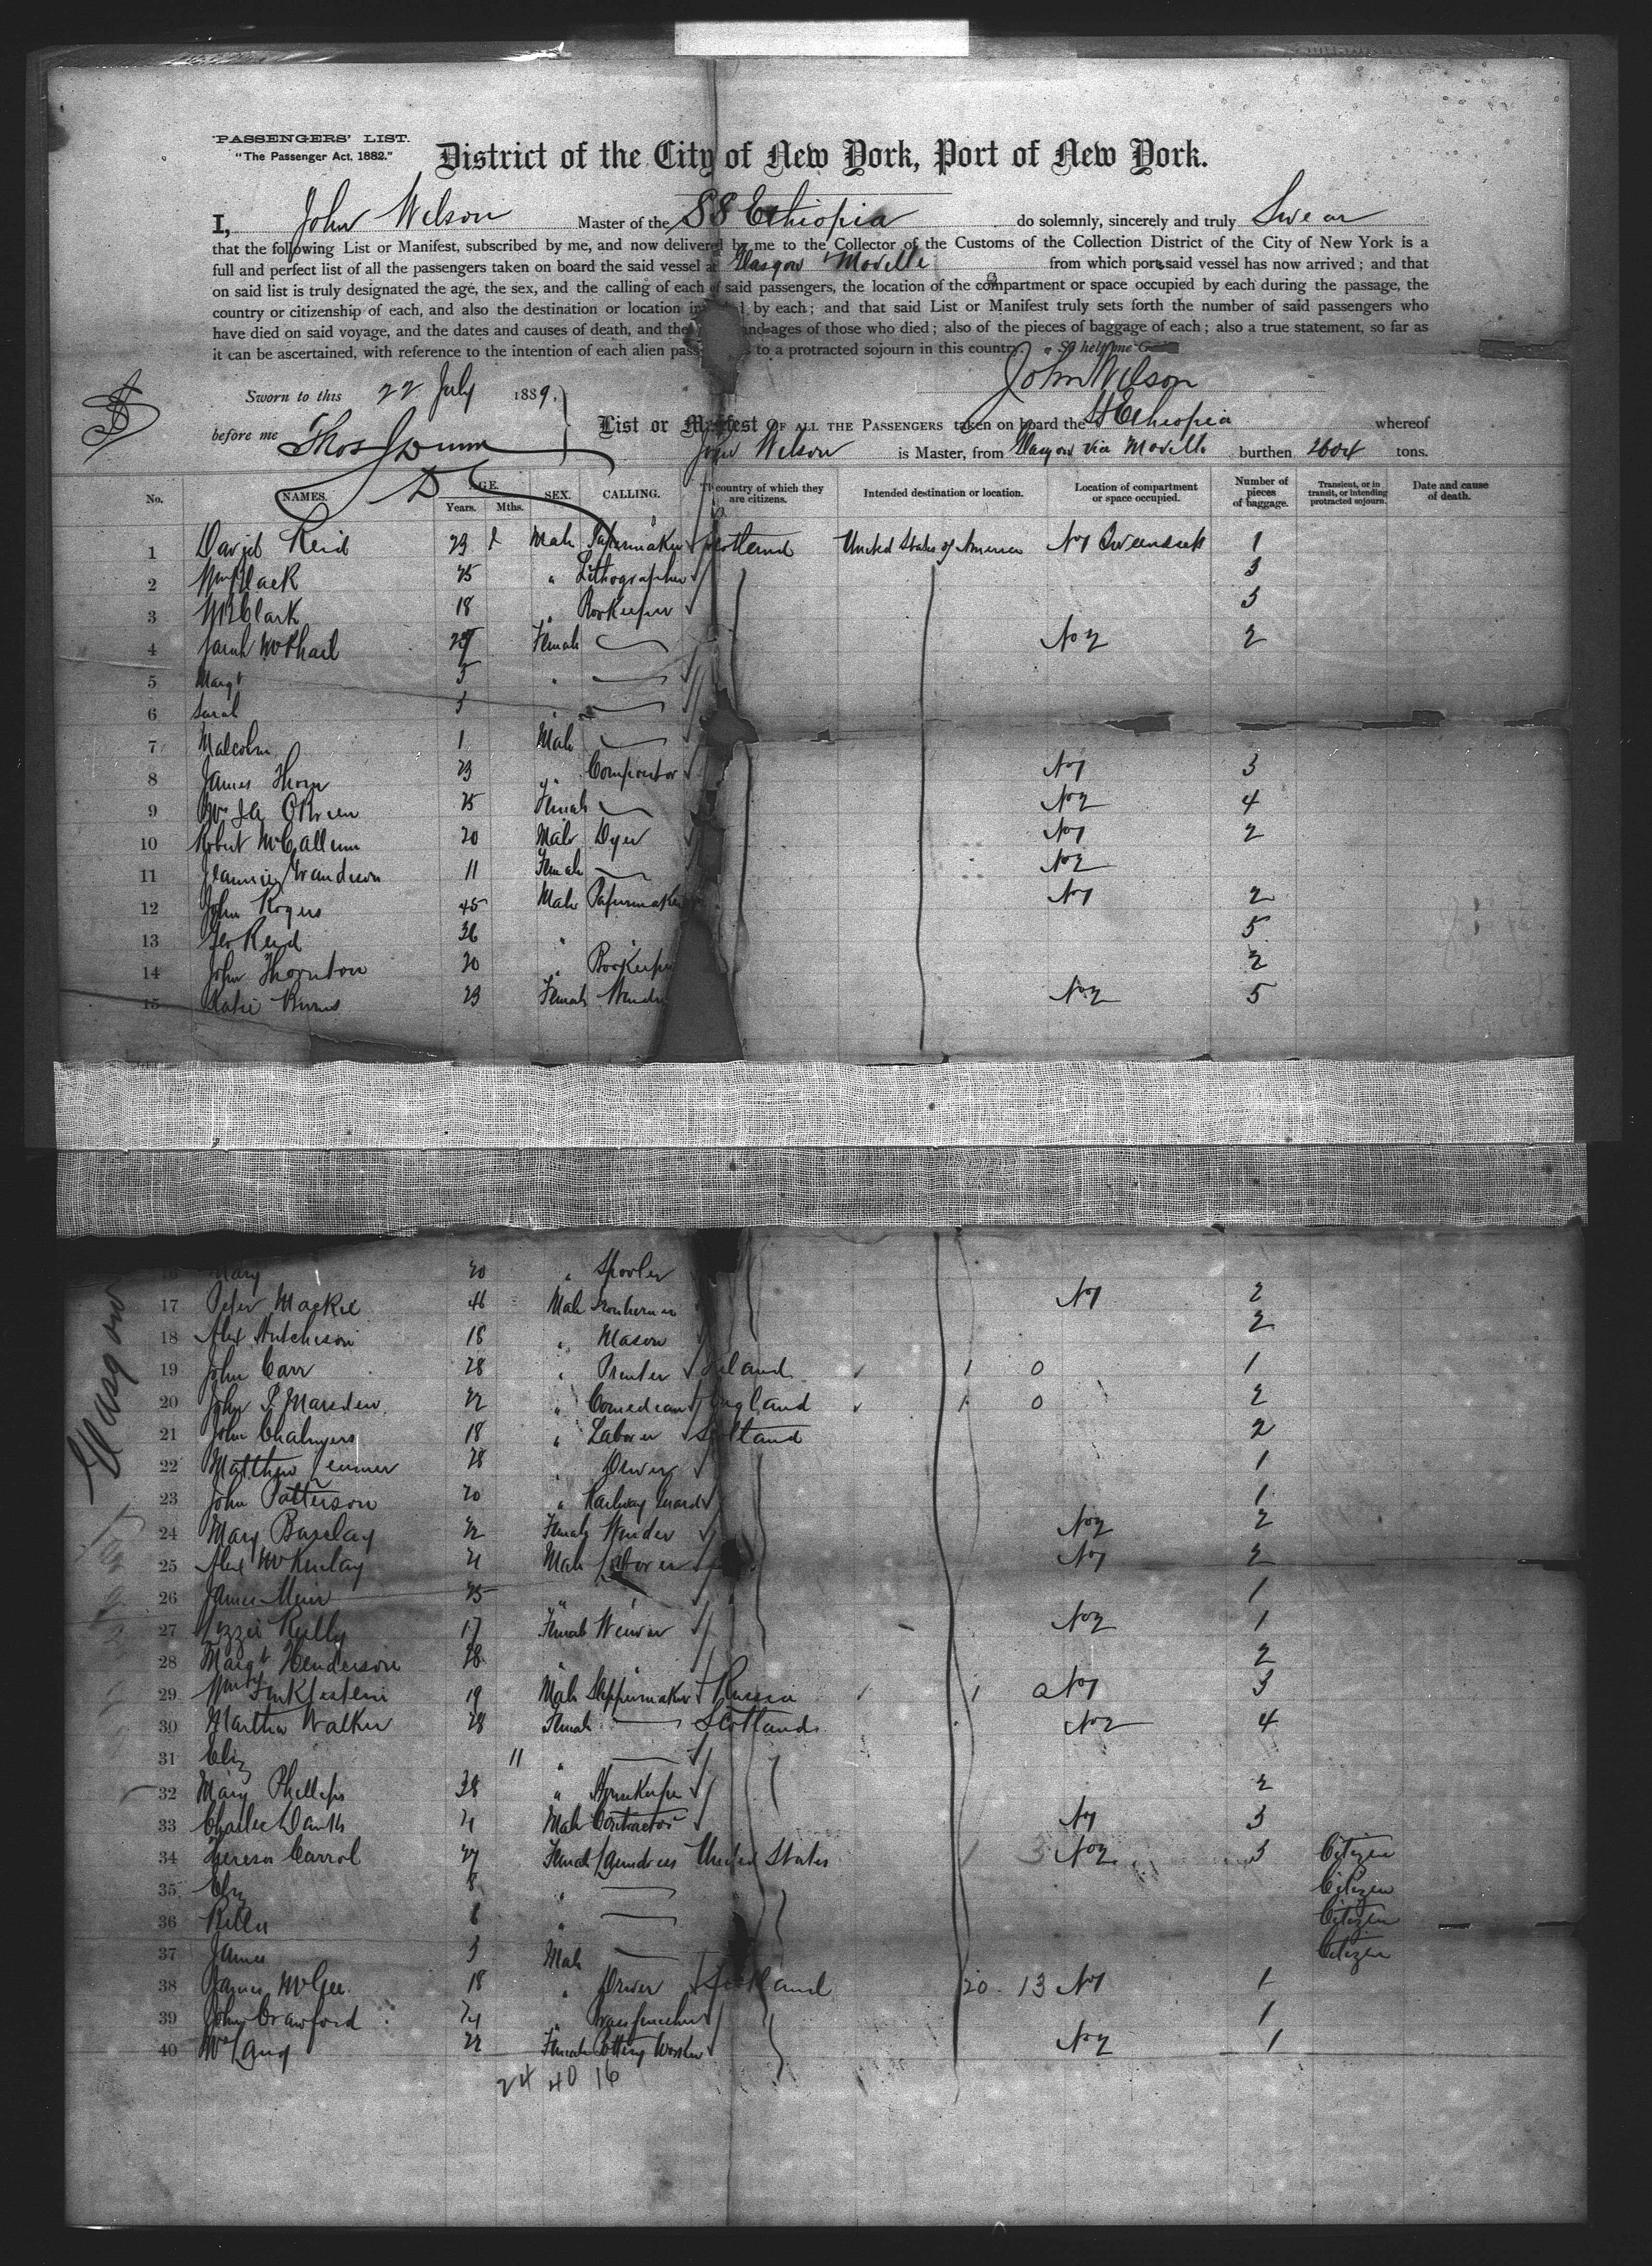 PASSENGERS' LIST.
"The Passenger Act, 1882."
District of the City of New York, Port of New York.
I, John Wilson Master of the SS Ethiopia do solemnly, sincerely and truly Swear
that the following List or Manifest, subscribed by me, and now delivered by me to the Collector of the Customs of the Collection District of the City of New York is a
full and perfect list of all the passengers taken on board the said vessel at Glasgow & Moville from which ports said vessel has now arrived; and that
on said list is truly designated the age, the sex, and the calling of each of said passengers, the location of the compartment or space occupied by each during the passage, the
country or citizenship of each, and also the destination or location by each; and that said List or Manifest truly sets forth the number of said passengers who
have died on said voyage, and the dates and causes of death, and the and ages of those who died; also of the pieces of baggage of each; also a true statement, so far as
it can be ascertained, with reference to the intention of each alien to a protracted sojourn in this country. So help me
Sworn to this 22 July 1889.
John Wilson
before me Thos
List or Manifest OF ALL THE PASSENGERS taken on board the SS Ethiopia whereof
John Wilson is Master, from Glasgow via Moville burthen 2604 tons.
No. NAMES. AGE. Years. Mths. SEX. CALLING. The country of which they are citizens. Intended destination or location. Location of compartment or space occupied. Number of pieces of baggage. Transient, or in transit, or intending protracted sojourn. Date and cause of death.
1 David Reid 23 Male Papermaker Scotland United States of America No 1 1
2 Wm Black 25 " Lithographer 3
3 Clark 18 " Bookeeper 3
4 Sarah McPhail Female No 2 2
5 Margt "
6 Sarah 3 "
7 Malcolm 1 Male
8 James Thom 23 " Compositor No 1 3
9 OBrien 25 Female No 2 4
10 Robert McCallum 20 Male Dyer No 1 2
11 11 Female No 2
12 John Rogers 45 Male Papermaker No 1 2
13 Geo Reid 36 " 5
14 John Thornton 20 " Bookeeper 2
15 Katie Burns 23 Female Winder No 2 5
16 Mary 20 " Spooler
17 Peter Mackie 46 Male No 1 2
18 Alex Hutchison 18 " Mason 2
19 John Carr 28 " Printer Ireland 1 0 1
20 John P. Marsden 22 " Comedian England 1 0 2
21 John Chalmers 18 " Laborer Scotland 2
22 Matthew 28 " 1
23 John Patterson 20 " Railway Guard 1
24 Mary Barclay 22 Female Winder No 2 2
25 Alex McKinlay 21 Male Laborer No 1 2
26 James 25 " 1
27 Lizzie Reilly 17 Female Weaver No 2 1
28 Margt Henderson 28 " 2
29 19 Male Slippermaker Russia 1 No 1 3
30 Martha Walker 28 Female Scotland No 2 4
31 Eliz 11 "
32 Mary Phillips 38 " Housekeeper 2
33 Charles 21 Male Contractor No 1 3
34 Theresa Carrol 27 Female Laundress United States 1 3 No 2 3 Citizen
35 Eliz 8 " Citizen
36 6 " Citizen
37 James 3 Male Citizen
38 James McGee 18 " Driver Scotland 20 13 No 1 1
39 John Crawford 24 " Brassfinisher 1
40 Lang 22 Female Pottery Worker No 2 1
24 40 16
Glasgow